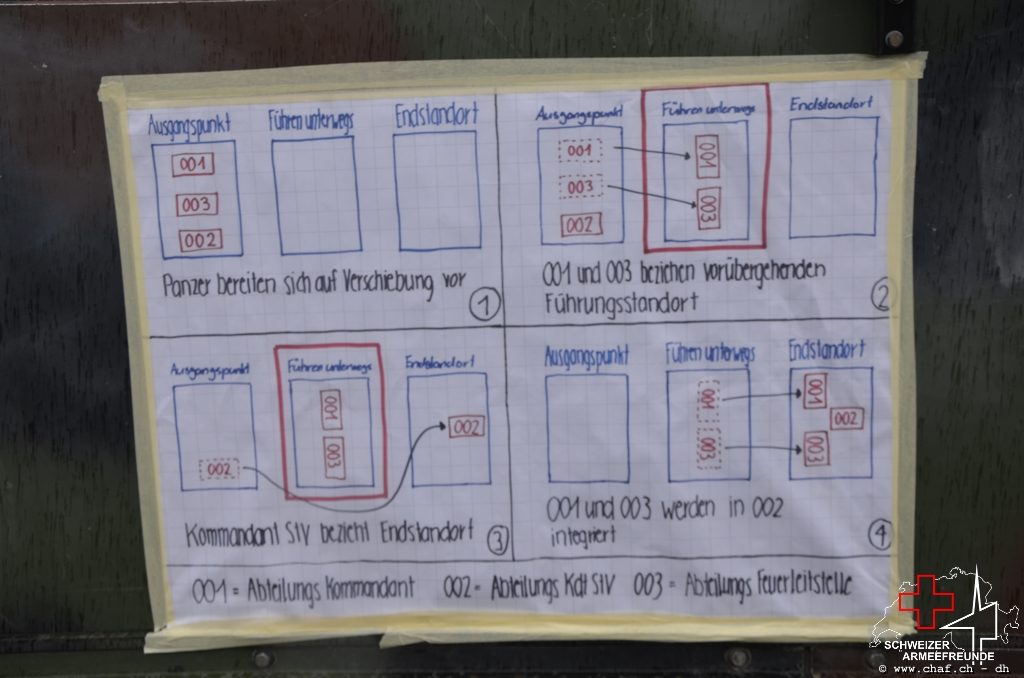 Ausgangspunkt Führen unterwegs Endstandort
001
003
002
Panzer bereiten sich auf Verschiebung vor
1
Ausgangspunkt Führen unterwegs Endstandort
001 001
003 003
002
001 und 003 beziehen vorübergehenden
Führungsstandort
2
Ausgangspunkt Führen unterwegs Endstandort
001
002
003
002
Kommandant StV bezieht Endstandort
3
Ausgangspunkt Führen unterwegs Endstandort
001 001
002
003 003
001 und 003 werden in 002
integriert
4
001 = Abteilungs Kommandant 002 = Abteilungs Kdt StV 003 = Abteilungs Feuerleitstelle
SCHWEIZER
ARMEEFREUNDE
© www.chaf.ch - dh